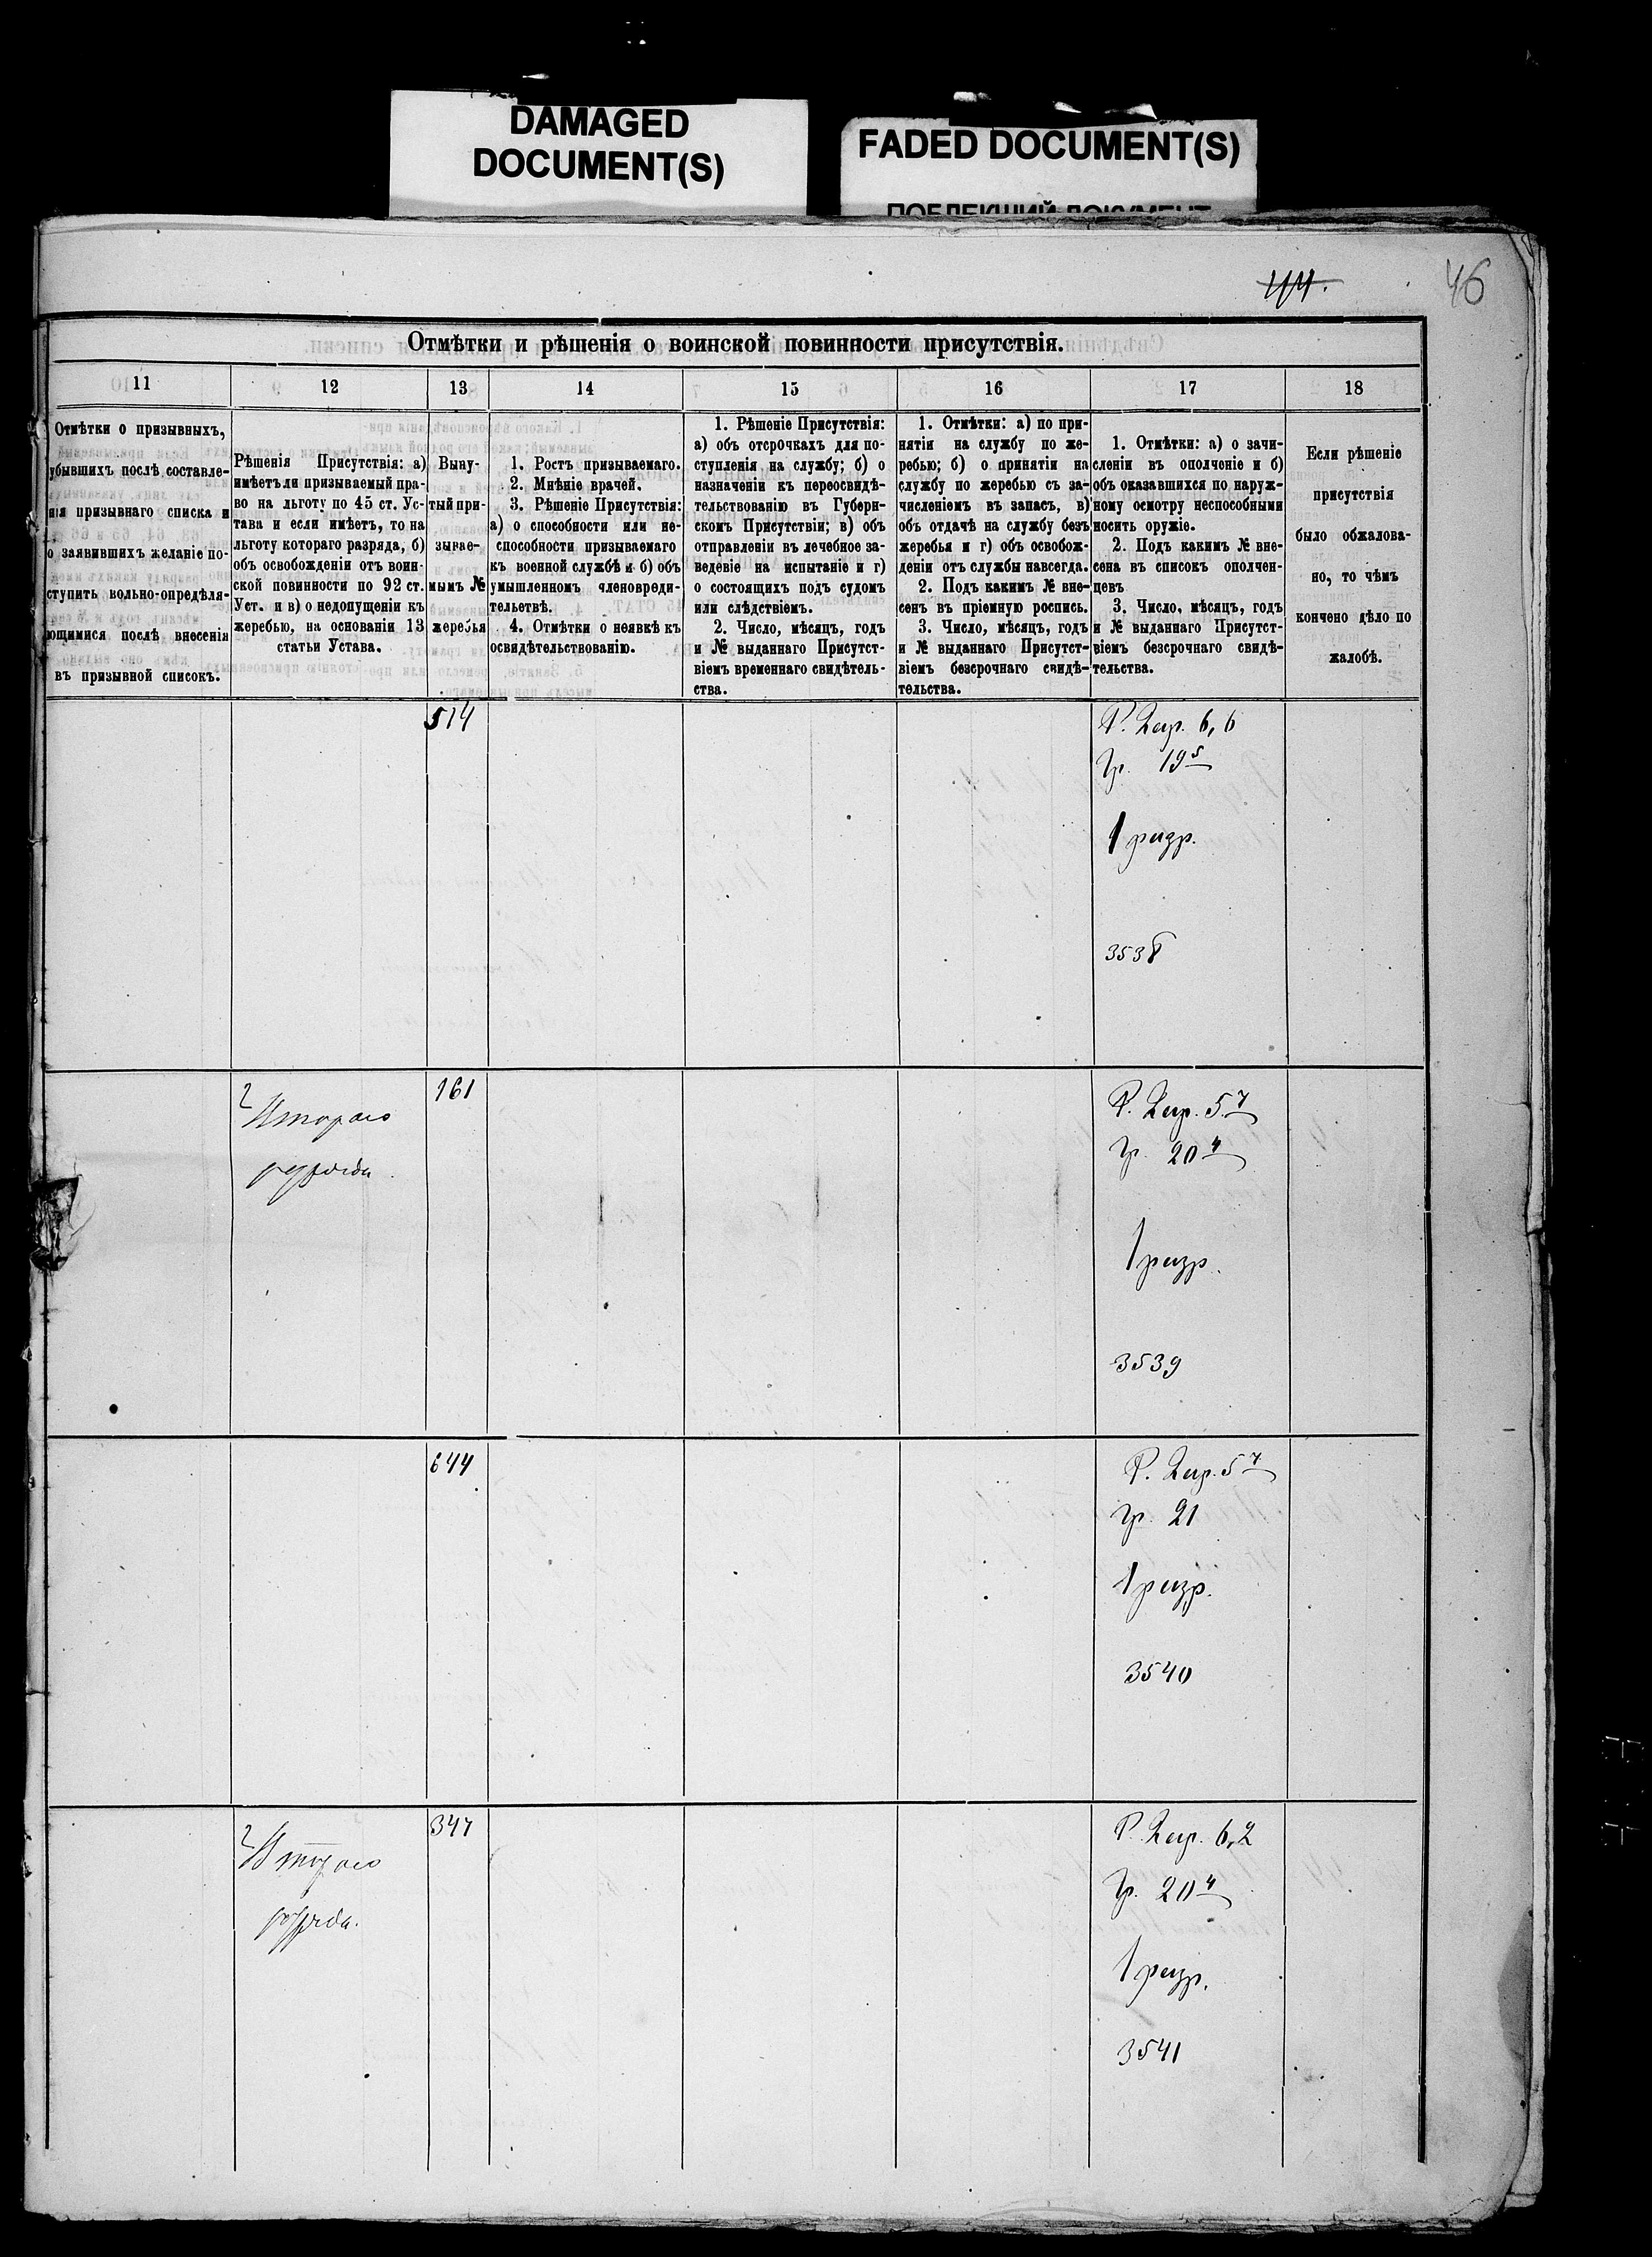 DAMAGED
DOCUMENT(S)
FADED DOCUMENT(S)
ПОБЛЕКШИЙ ДОКУМЕНТ
44.
46
Отмѣтки и рѣшенія о воинской повинности присутствія.
11 12 13 14 15 16 17 18
Отмѣтки о призывныхъ,
убывшихъ послѣ составле-
нія призывнаго списка и
о заявившихъ желаніе по-
ступить вольно-опредѣля-
ющимися послѣ внесенія
въ призывной списокъ.
Рѣшенія Присутствія: а)
имѣетъ ли призываемый пра-
во на льготу по 45 ст. Ус-
тава и если имѣетъ, то на
льготу котораго разряда, б)
объ освобожденіи отъ воин-
ской повинности по 92 ст.
Уст. и в) о недопущеніи къ
жеребью, на основаніи 13
статьи Устава.
Выну-
тый при-
зывае-
мымъ №
жеребья
1. Ростъ призываемаго.
2. Мнѣніе врачей.
3. Рѣшеніе Присутствія:
а) о способности или не-
способности призываемаго
къ военной службѣ и б) объ
умышленномъ членовреди-
тельствѣ.
4. Отмѣтки о неявкѣ къ
освидѣтельствованію.
1. Рѣшеніе Присутствія:
а) объ отсрочкахъ для по-
ступленія на службу; б) о
назначеніи къ переосвидѣ-
тельствованію въ Губерн-
скомъ Присутствіи; в) объ
отправленіи въ лечебное за-
веденіе на испытаніе и г)
о состоящихъ подъ судомъ
или слѣдствіемъ.
2. Число, мѣсяцъ, годъ
и № выданнаго Присутст-
віемъ временнаго свидѣтель-
ства.
1. Отмѣтки: а) по при-
нятіи на службу по же-
ребью; б) о принятіи на
службу по жеребью съ за-
численіемъ въ запасъ, в)
объ отдачѣ на службу безъ
жеребья и г) объ освобож-
деніи отъ службы навсегда.
2. Подъ какимъ № вне-
сенъ въ пріемную роспись.
3. Число, мѣсяцъ, годъ
и № выданнаго Присутст-
віемъ безсрочнаго свидѣ-
тельства.
1. Отмѣтки: а) о зачи-
сленіи въ ополченіе и б)
объ оказавшихся по наруж-
ному осмотру неспособными
носить оружіе.
2. Подъ какимъ № вне-
сена въ списокъ ополчен-
цевъ
3. Число, мѣсяцъ, годъ
и № выданнаго Присутст-
віемъ безсрочнаго свидѣ-
тельства.
Если рѣшеніе
присутствія
было обжалова-
но, то чѣмъ
кончено дѣло по
жалобѣ.
514
Р. 2 ар. 6, 6
Гр. 19 5
1 разр.
3538
Втораго
разряда.
161
Р. 2 ар. 5. 7
Гр. 20 4
1 разр.
3539
644
Р. 2 ар. 5 7
Гр. 21
1 разр.
3540
Втораго
разряда.
347
Р. 2 ар. 6, 2
Гр. 20 4
1 разр.
3541